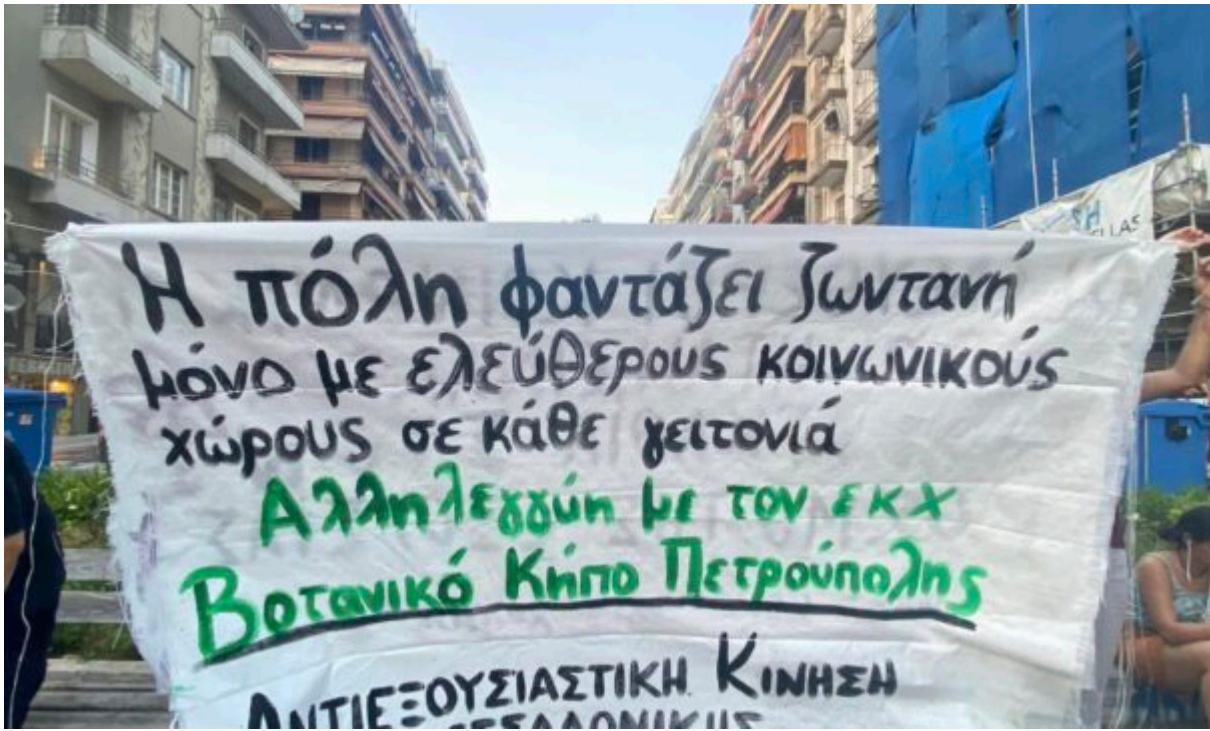 Η πόλη φαντάζει ζωντανή
μόνο με ελεύθερους κοινωνικούς
χώρους σε κάθε γειτονιά
Αλληλεγγύη με τον ΕΚΧ
Βοτανικό Κήπο Πετρούπολης
ΑΝΤΙΕΞΟΥΣΙΑΣΤΙΚΗ ΚΙΝΗΣΗ
ΘΕΣΣΑΛΟΝΙΚΗΣ